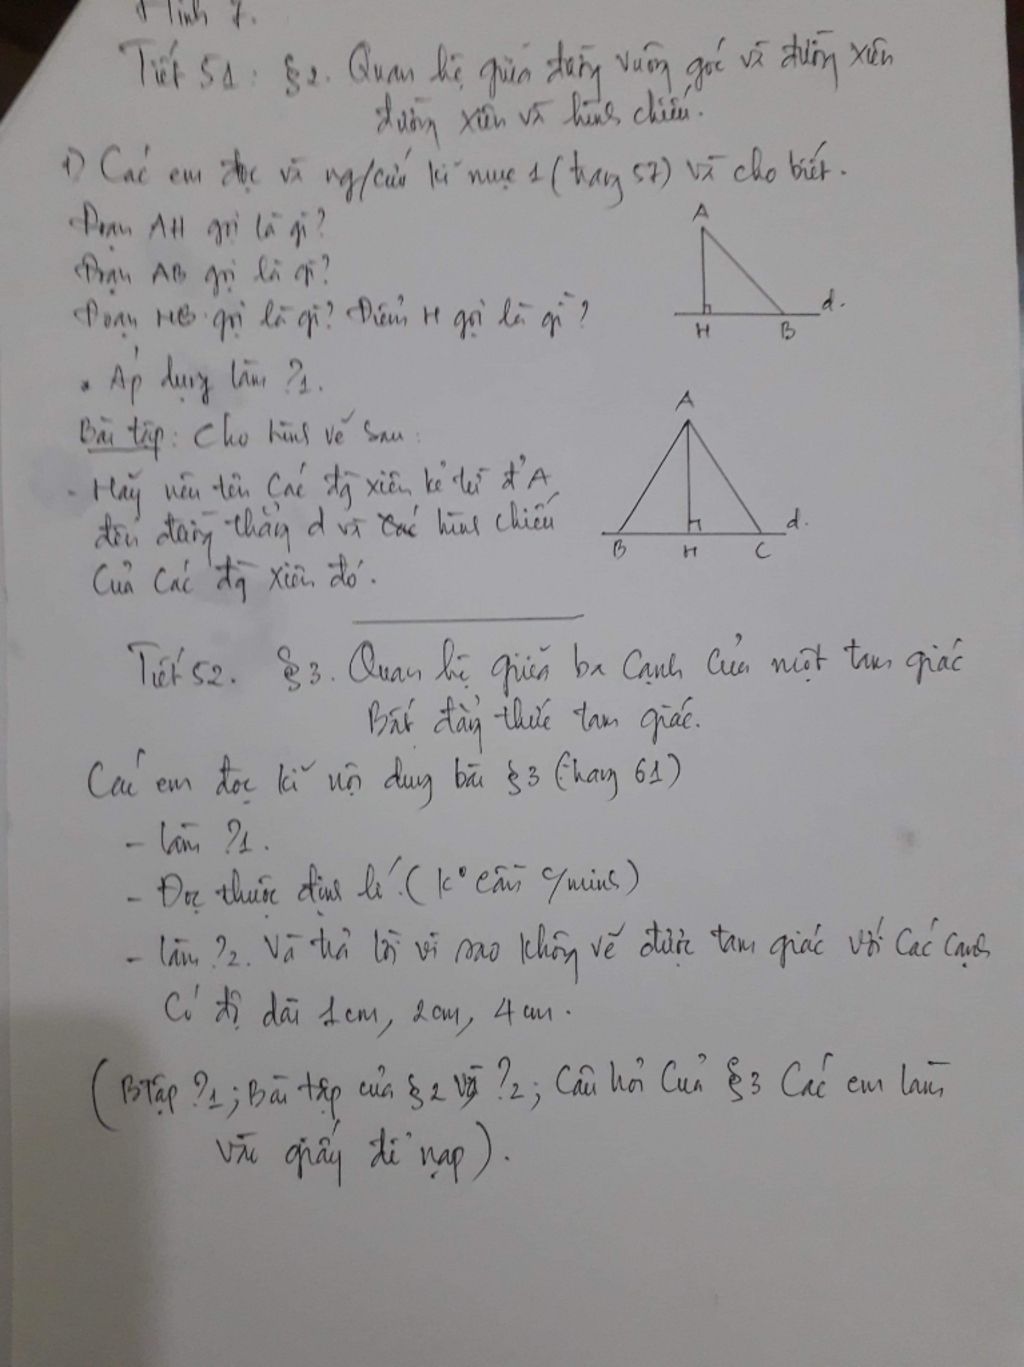 Hình 7.
Tiết 51: §2. Quan hệ giữa đường vuông góc và đường xiên
đường xiên và hình chiếu.
1) Các em đọc và ng/cứu kĩ mục 1 (trang 57) và cho biết.
Đoạn AH gọi là gì?
Đoạn AB gọi là gì?
Đoạn HB gọi là gì? Điểm H gọi là gì?
A
d.
H
B
* Áp dụng làm ?1.
Bài tập: Cho hình vẽ sau:
- Hãy nêu tên các đg xiên kẻ từ đ' A
đến đường thẳng d và các hình chiếu
của các đg xiên đó.
A
d.
B
H
C
Tiết 52. §3. Quan hệ giữa ba cạnh của một tam giác
Bất đẳng thức tam giác.
Các em đọc kĩ nội dung bài §3 (trang 61)
- Làm ?1.
- Đọc thuộc định lí. (k° cần c/minh)
- Làm ?2. Và trả lời vì sao không vẽ được tam giác với các cạnh
có độ dài 1cm, 2cm, 4cm.
(BTập ?1; Bài tập của §2 và ?2; Câu hỏi của §3 Các em làm
vào giấy để nạp).